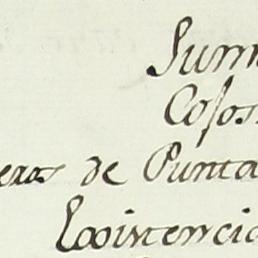 Sum
Cosos
eros de Punta
Existencia